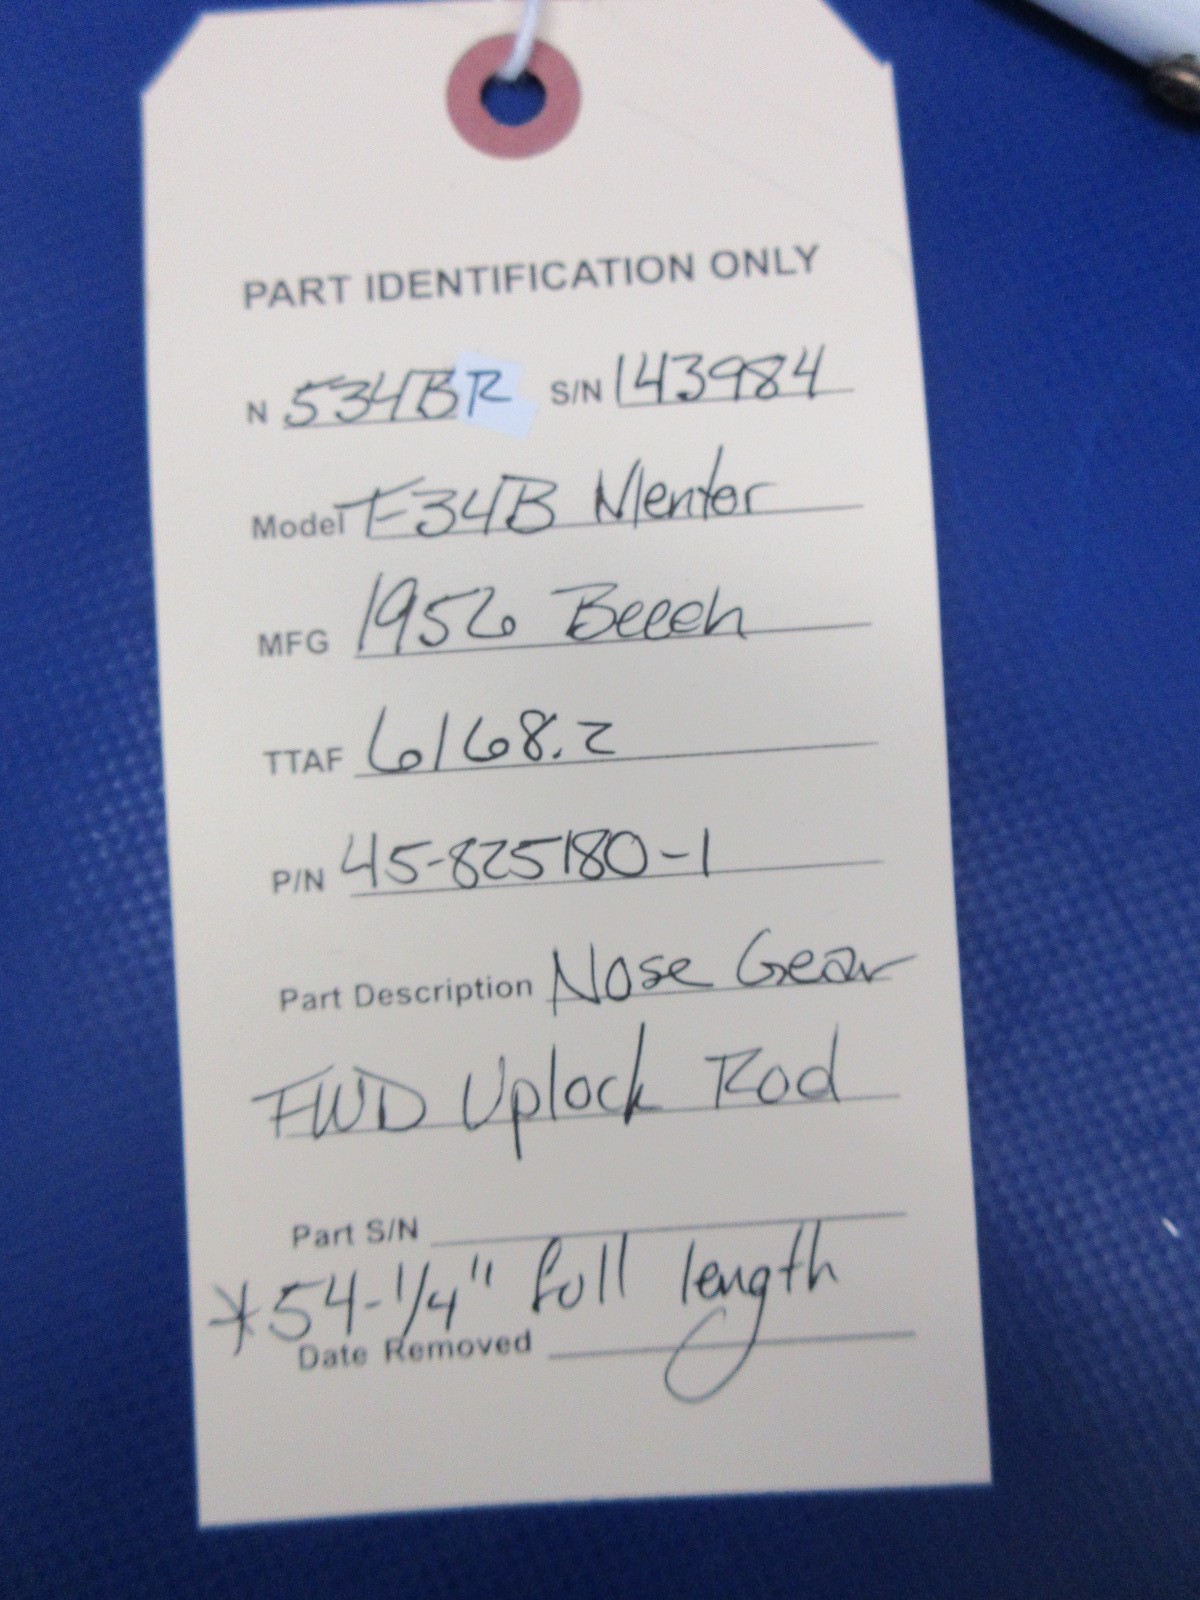 PART IDENTIFICATION ONLY
N 534BR S/N 143984
Model T-34B Mentor
MFG 1956 Beech
TTAF 6168.2
P/N 45-825180-1
Part Description Nose Gear
FWD Uplock Rod
Part S/N
*54-1/4" full length
Date Removed